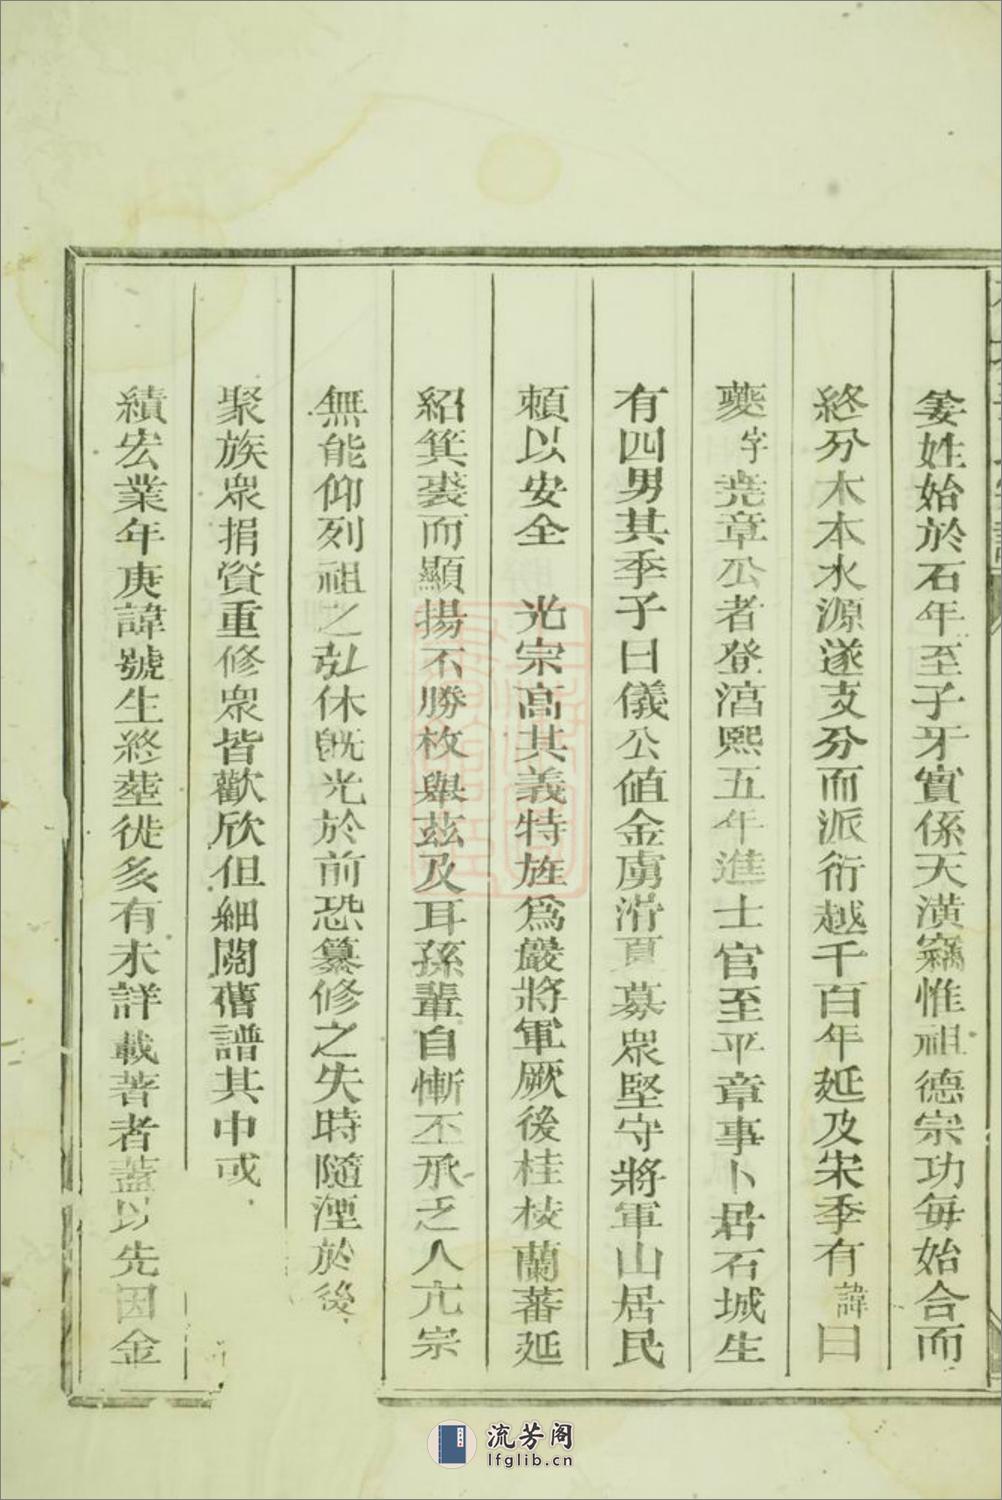 姜姓始於石年至子牙實係天潢竊惟祖德宗功每始合而
終分木本水源遂支分而派衍越千百年延及宋季有諱曰
夔字堯章公者登淳熙五年進士官至平章事卜居石城生
有四男其季子曰儀公值金虜滑夏募眾堅守將軍山居民
賴以安全 光宗高其義特旌為嚴將軍厥後桂枝蘭蕃延
紹箕裘而顯揚不勝枚舉茲及耳孫輩自慚丕承乏人亢宗
無能仰列祖之弘休旣光於前恐纂修之失時隨湮於後
聚族眾捐資重修眾皆歡欣但細閱舊譜其中或
績宏業年庚諱號生終塟徙多有未詳載著者蓋以先因金
流芳阁
lfglib.cn